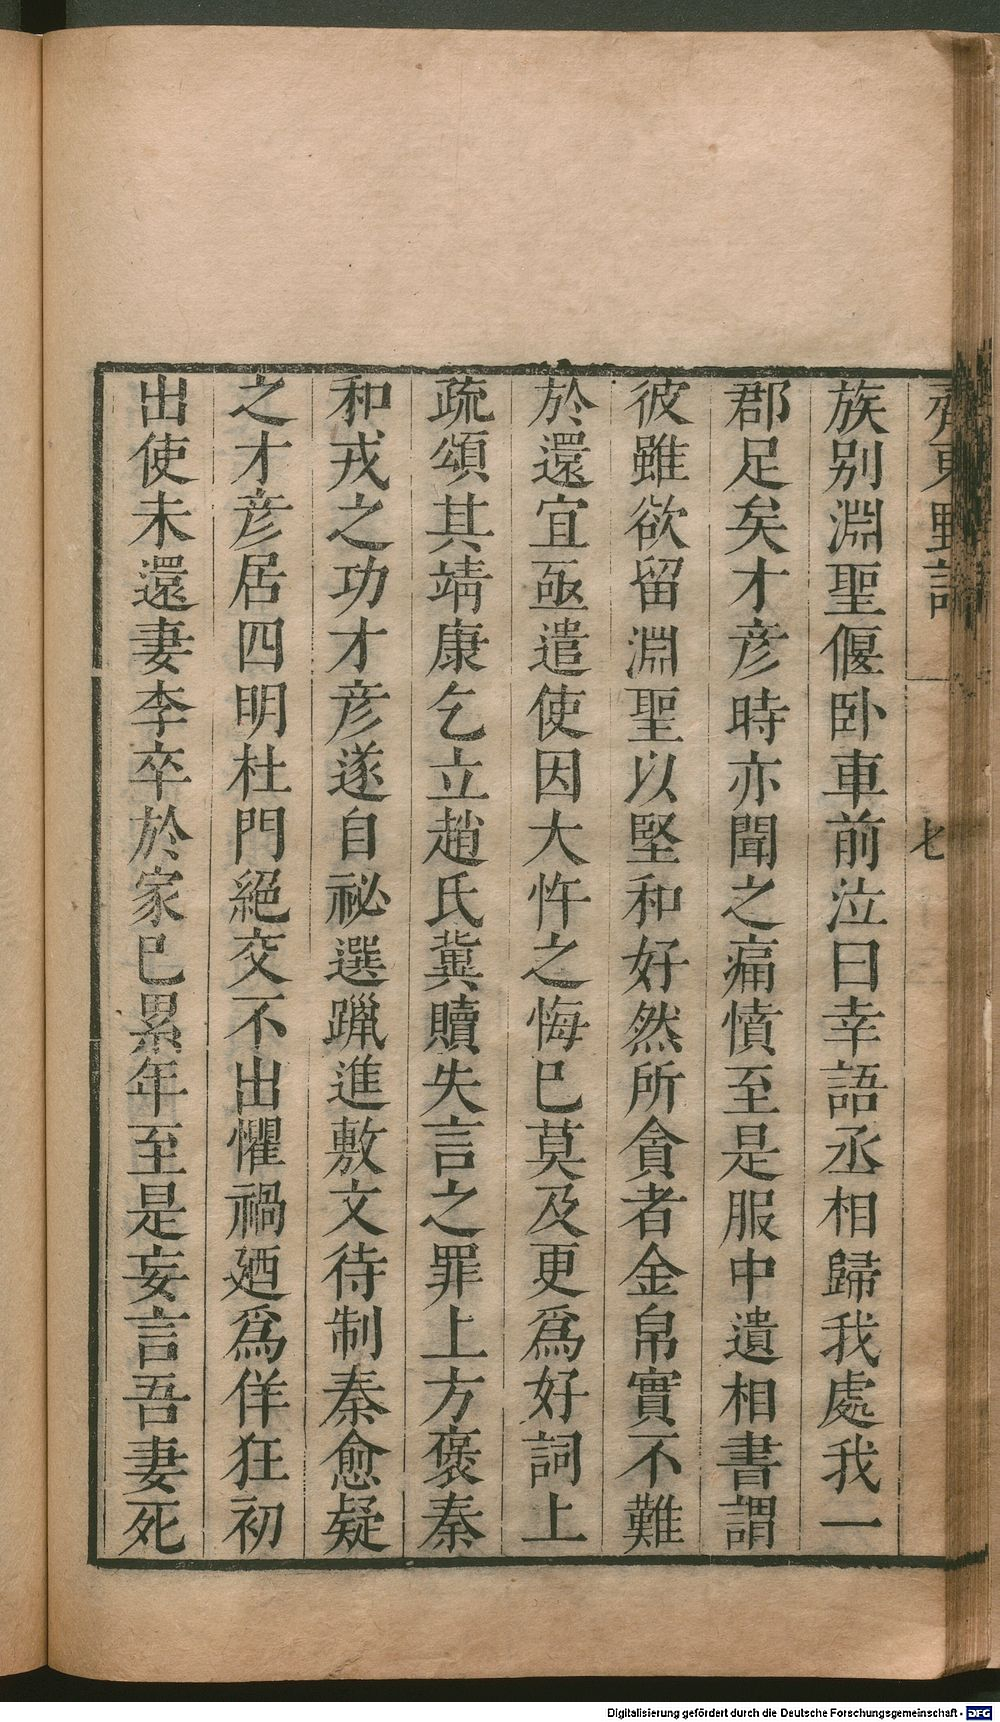 齊東野語
七
族别淵聖偃卧車前泣曰幸語丞相歸我處我一
郡足矣才彥時亦聞之痛憤至是服中遺相書謂
彼雖欲留淵聖以堅和好然所貪者金帛實不難
於還宜亟遣使因大忤之悔已莫及更爲好詞上
疏頌其靖康乞立趙氏冀贖失言之罪上方褒秦
和戎之功才彥遂自祕選躐進敷文待制秦愈疑
之才彥居四明杜門絕交不出懼禍廼爲佯狂初
出使未還妻李卒於家已累年至是妄言吾妻死
Digitalisierung gefördert durch die Deutsche Forschungsgemeinschaft - DFG